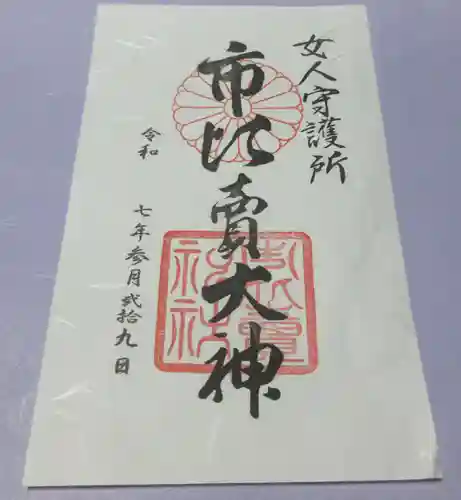 女人守護所
市比賣大神
令和
七年参月弐拾九日